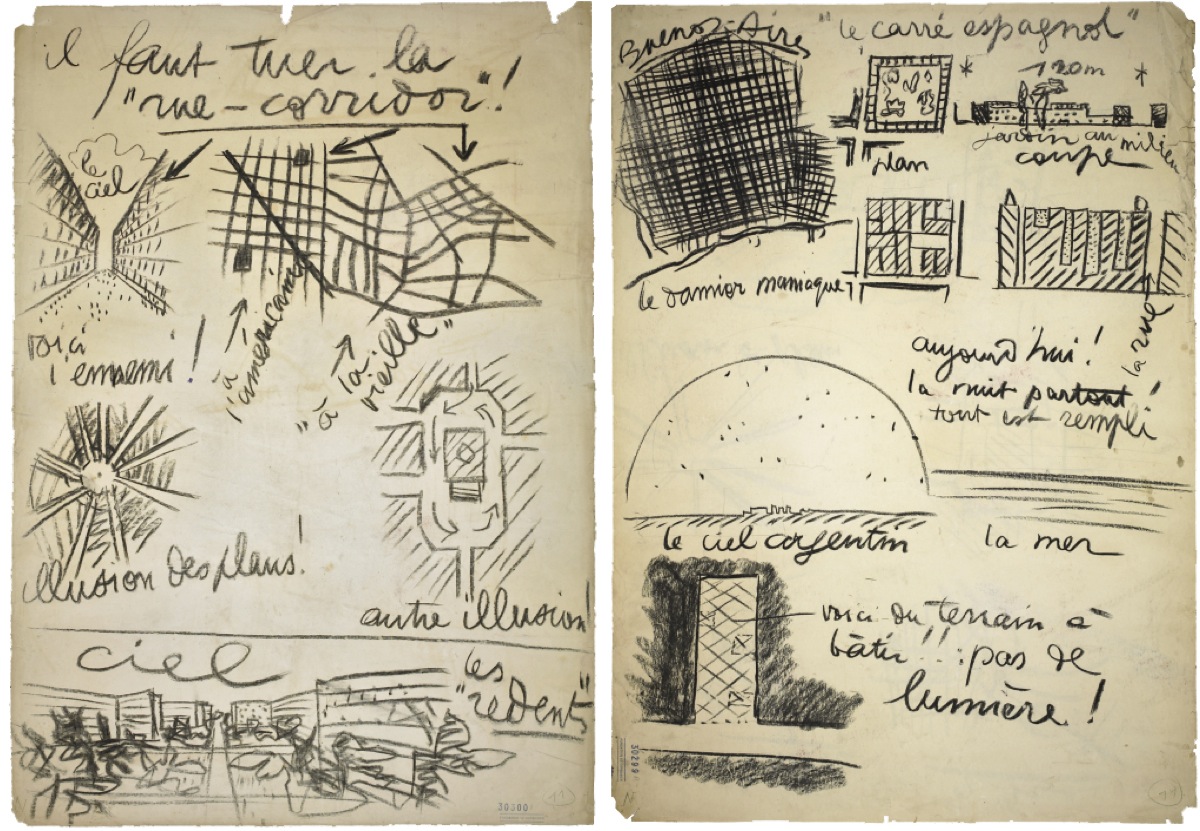 il faut tuer la
"rue-corridor"!
le
ciel
voici
l'ennemi!
à
l'américaine
"à la
vieille"
illusion des plans!
autre illusion!
ciel
les
"redents"
30300
11
Buenos-Aires
"le carré espagnol"
120m
plan
jardin au milieu
coupe
le damier maniaque
la rue
aujourd'hui!
la nuit partout!
tout est rempli
le ciel argentin
la mer
voici du terrain à
bâtir!! : pas de
lumière!
30299